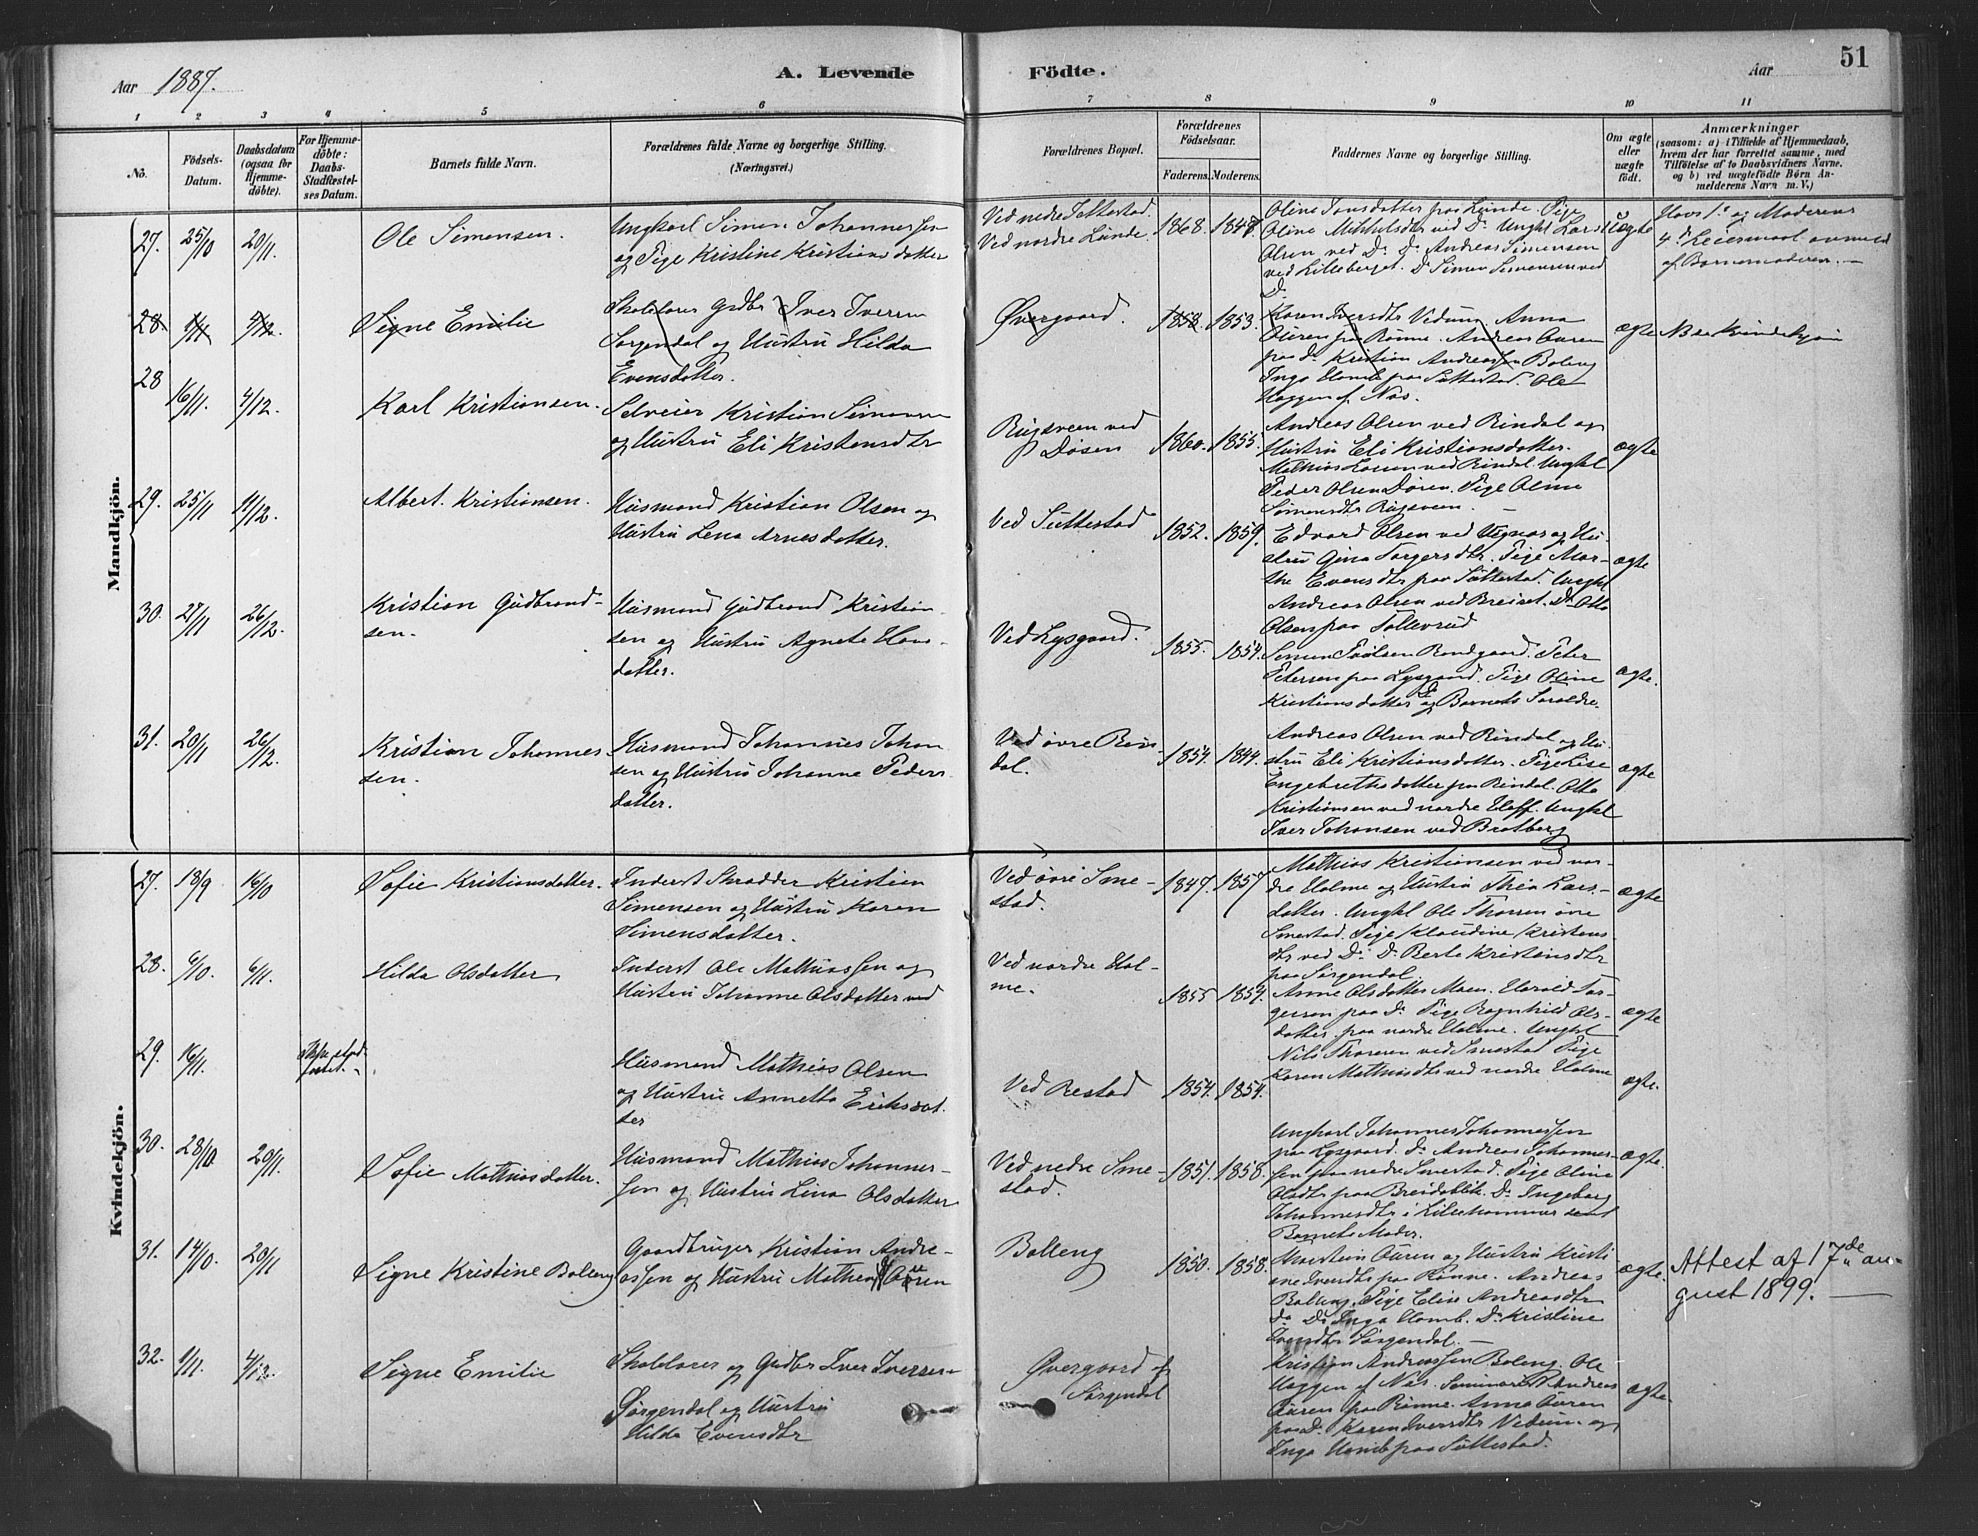 Aar 1887.
A. Levende Födte.
Aar
51
1 2 3 4 5 6 7 8 9 10 11
No.
Födsels-
Datum.
Daabsdatum
(ogsaa for
Hjemme-
döbte).
For Hjemme-
döbte:
Daabs-
Stadfæstel-
ses Datum.
Barnets fulde Navn.
Forældrenes fulde Navne og borgerlige Stilling.
(Næringsvei.)
Forældrenes Bopæl.
Forældrenes
Födselsaar.
Faderens. Moderens.
Faddernes Navne og borgerlige Stilling.
Om ægte
eller
uægte
födt.
Anmærkninger
(saasom: a) i Tilfælde af Hjemmedaab,
hvem der har forrettet samme, med
Tilföielse af to Daabsvidners Navne.
og b) ved uægtefödte Börn An-
melderens Navn m. V.)
Mandkjön.
27. 25/10 20/11.
Ole Simensen.
Ungkarl Simen Johannessen
og Pige Kristine Kristiansdatter
Ved nedre Suttestad.
Ved nordre Lunde.
1868. 1848.
Oline Jonsdatter paa Lunde. Pige
Oline Mikkelsdtr ved Do Ungkl Lars
Olsen ved Do. Do Andreas Simensen
ved Lilleberget. Do Simen ved
Do.
Uægte
Hans 1ste og Moderens
4de Leiermaal anmeld
af Barnemoderen. —
28. 1/11 4/12.
Signe Emilie
Skolelærer Grdbr Iver Iversen
Sørgendal og Hustru Hilda
Evensdatter.
Øvergaard.
1858. 1853.
Karen Iversdtr Vedum. Anna
Øuren paa Rønne. Andreas Øuren
paa Do. Kristian Andreassen Boleng
Inga Homb paa Suttestad. Ole
Haggen af Næs.
ægte
NB se Kvindekjøn
28 16/11. 4/12.
Karl Kristiansen.
Selveier Kristian Simensen
og Hustru Eli Kristensdtr
Rugsveen ved
Døsen
1860. 1855.
Andreas Olsen ved Rindal og
Hustru Eli Kristiansdatter.
Mathias Larsen ved Rindal. Ungkl
Peder Olsen Døsen. Pige Oline
Simensdtr Rugsveen.
ægte
29. 25/11 11/12.
Albert Kristiansen.
Husmand Kristian Olsen og
Hustru Lena Arnesdatter.
Ved Suttestad
1852. 1859.
Edvard Olsen ved Vignæs og Hu-
stru Gina Torgersdtr. Pige Mar-
the Evensdtr paa Suttestad. Ungkl
Andreas Olsen ved Breiset. Do Otto
Olsen paa Tollersrud
ægte
30. 27/11 26/12.
Kristian Gudbrand-
sen.
Husmand Gudbrand Kristian-
sen og Hustru Agnete Hans-
datter.
Ved Lysgaard.
1855. 1854.
Simen Paulsen Rondgaard. Peter
Petersen paa Lysgaard. Pige Oline
Kristiansdatter Do og Barnets Forældre.
ægte.
31. 20/11 26/12.
Kristian Johannes
sen.
Husmand Johannes Johan
sen og Hustru Johanne Peders
datter.
Ved øvre Rin-
dal.
1854. 1844.
Andreas Olsen ved Rindal og Hu-
stru Eli Kristiansdatter. Pige Lise
Engebrethsdatter paa Rindal. Otto
Kristiansen ved nordre Hoff. Ungkl
Iver Johansen ved Bratberg
ægte
Kvindekjön.
27. 18/9 16/10
Sofie Kristiansdatter.
Inderst Skrædder Kristian
Simensen og Hustru Karen
Simensdatter.
Ved øvre Sme-
stad.
1847. 1857.
Mathias Kristiansen ved nor-
dre Holme og Hustru Thea Lars-
datter. Ungkl Ole Thoresen øvre
Smestad. Pige Klaudine Kristens
dtr ved Do. Do Berte Kristiansdtr
paa Sørgendal.
ægte
28. 6/10. 6/11.
Hilda Olsdatter
Inderst Ole Mathiassen og
Hustru Johanne Olsdatter ved
Ved nordre Hol-
me.
1855 1859.
Anne Olsdatter Moen. Harald Tor-
gersen paa Do. Pige Ragnhild Ols-
datter paa nordre Holme. Ungkl
Nils Thoresen ved Smestad Pige
Karen Mathiasdtr ved nordre Holme
ægte
29. 16/11.
Husmand Mathias Olsen
og Hustru Annette Eriksdat
ter
Ved Restad
1854. 1854.
ægte.
30. 28/10. 20/11.
Sofie Mathiasdatter.
Husmand Mathias Johannes-
sen og Hustru Lina Olsdatter
Ved nedre Sme-
stad.
1851. 1858.
Ungkarl Johannes Johannessen
paa Lysgaard. Do Andreas Johannes-
sen paa nedre Smestad. Pige Oline
Olsdtr paa Breidablik. Do Ingeborg
Johannesdtr i Lillehammer samt
Barnets Moder.
ægte.
31. 14/10. 20/11
Signe Kristine Boleng
Gaardbruger Kristian Andre-
assen og Hustru Mathea Øuren
Bolleng
1850. 1858.
Øuren og Hustru Kristi
ane Iversdtr paa Rønne. Andreas
Bolleng. Pige Elise Andreasdtr
Do Do Inga Homb. Do Kristine
Iversdtr Sørgendal. —
ægte.
Attest af 17de au-
gust 1899. —
32. 1/11. 4/12.
Signe Emilie
Skolelærer og Grdbr Iver Iversen
Sørgendal og Hustru
Hilda Evensdtr
Øvergaard af
Sørgendal
Kristian Andreassen Boleng. Ole
Haggen af Næs. Seminarist Andreas
Øuren paa Rønne. Anna Øuren
paa Do. Karen Iversdtr Vedum og
Inga Homb paa Suttestad.
ægte.